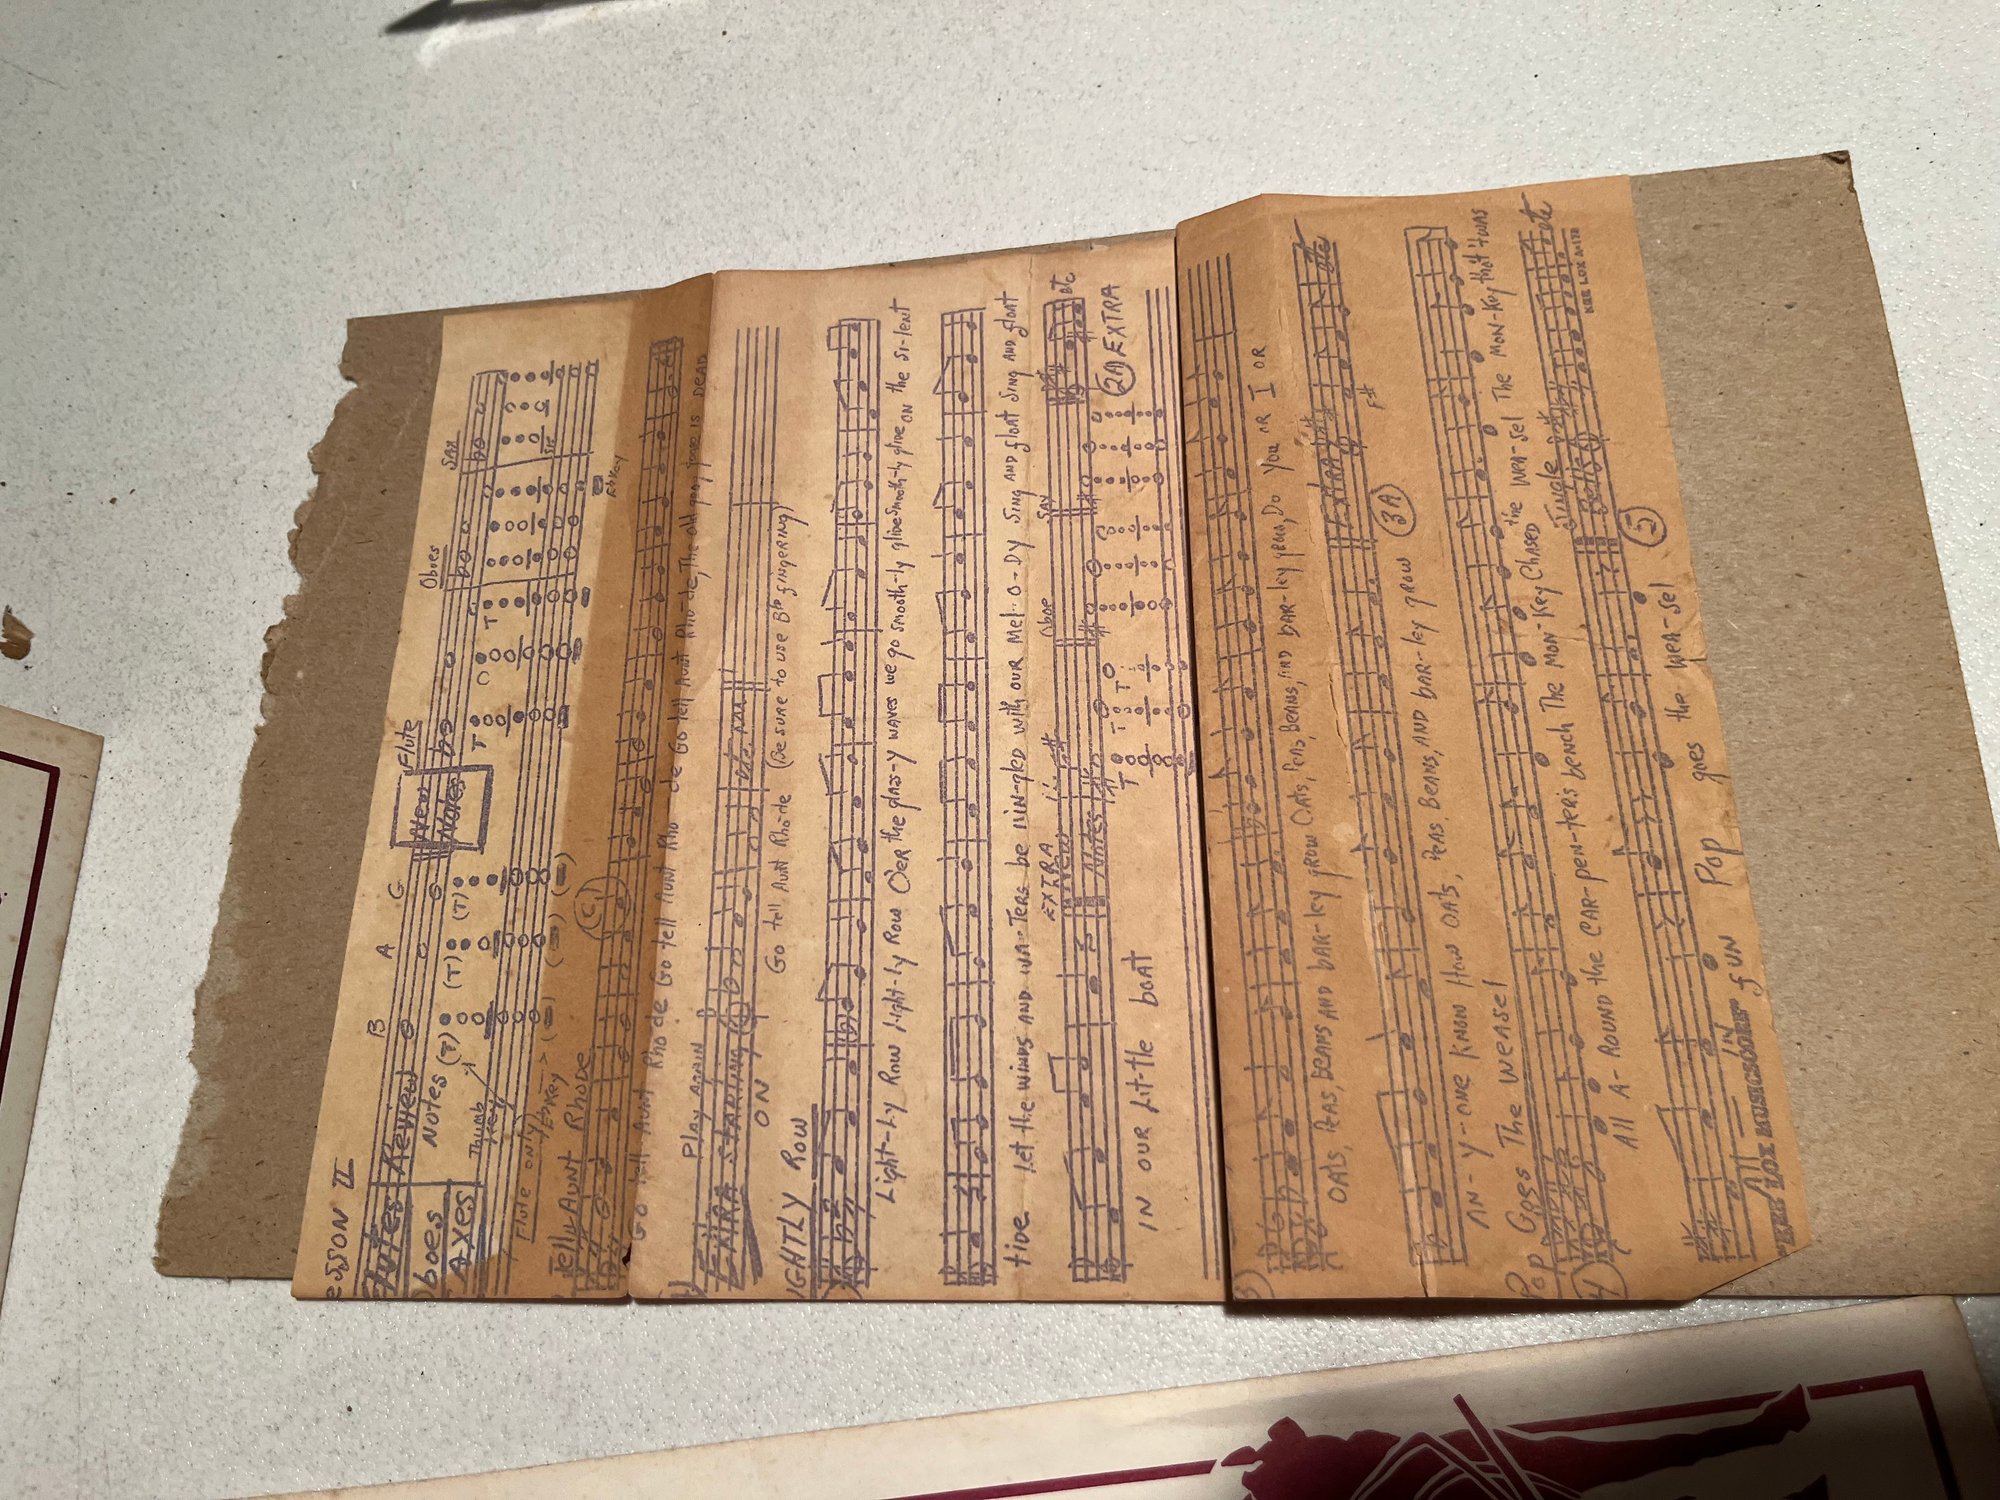 esson II
Flute
Oboes
Sax
B A G
Flutes Review
New
Notes
Oboes
Notes (T) (T) (T) T C T
Axes
Thumb
Key
Flute only
Eb Key >
Eb Key
Tell Aunt Rhode
C
Go tell Aunt Rho de Go tell Aunt Rho de Go tell Aunt Rho-de, The old gray goose is dead
Play again
Extra Starting
on
Go tell Aunt Rho-de (Be sure to use Bb fingering)
ightly Row
Light-ly Row Light-ly Row O'er the glass-y waves we go smooth-ly glide smooth-ly glide on the si-lent
tide Let the winds and wa-ters be min-gled with our mel-o-dy Sing and float Sing and float
Extra
New
Notes
Oboe
Sax
etc
T T
2A Extra
in our lit-tle boat
3)
Oats, Peas, Beans and bar-ley grow Oats, Peas, Beans, and bar-ley grow, Do you or I or
Extra
etc
F#
An-y-one know How Oats, Peas, Beans, and bar-ley grow 3A
Pop Goes The Weasel
4)
All A-round the car-pen-ters bench The Mon-key Chased the wea-sel The Mon-key that 'twas
Jingle
Bells
etc
Kee Lox Mfg
All in fun Pop goes the wea-sel 5